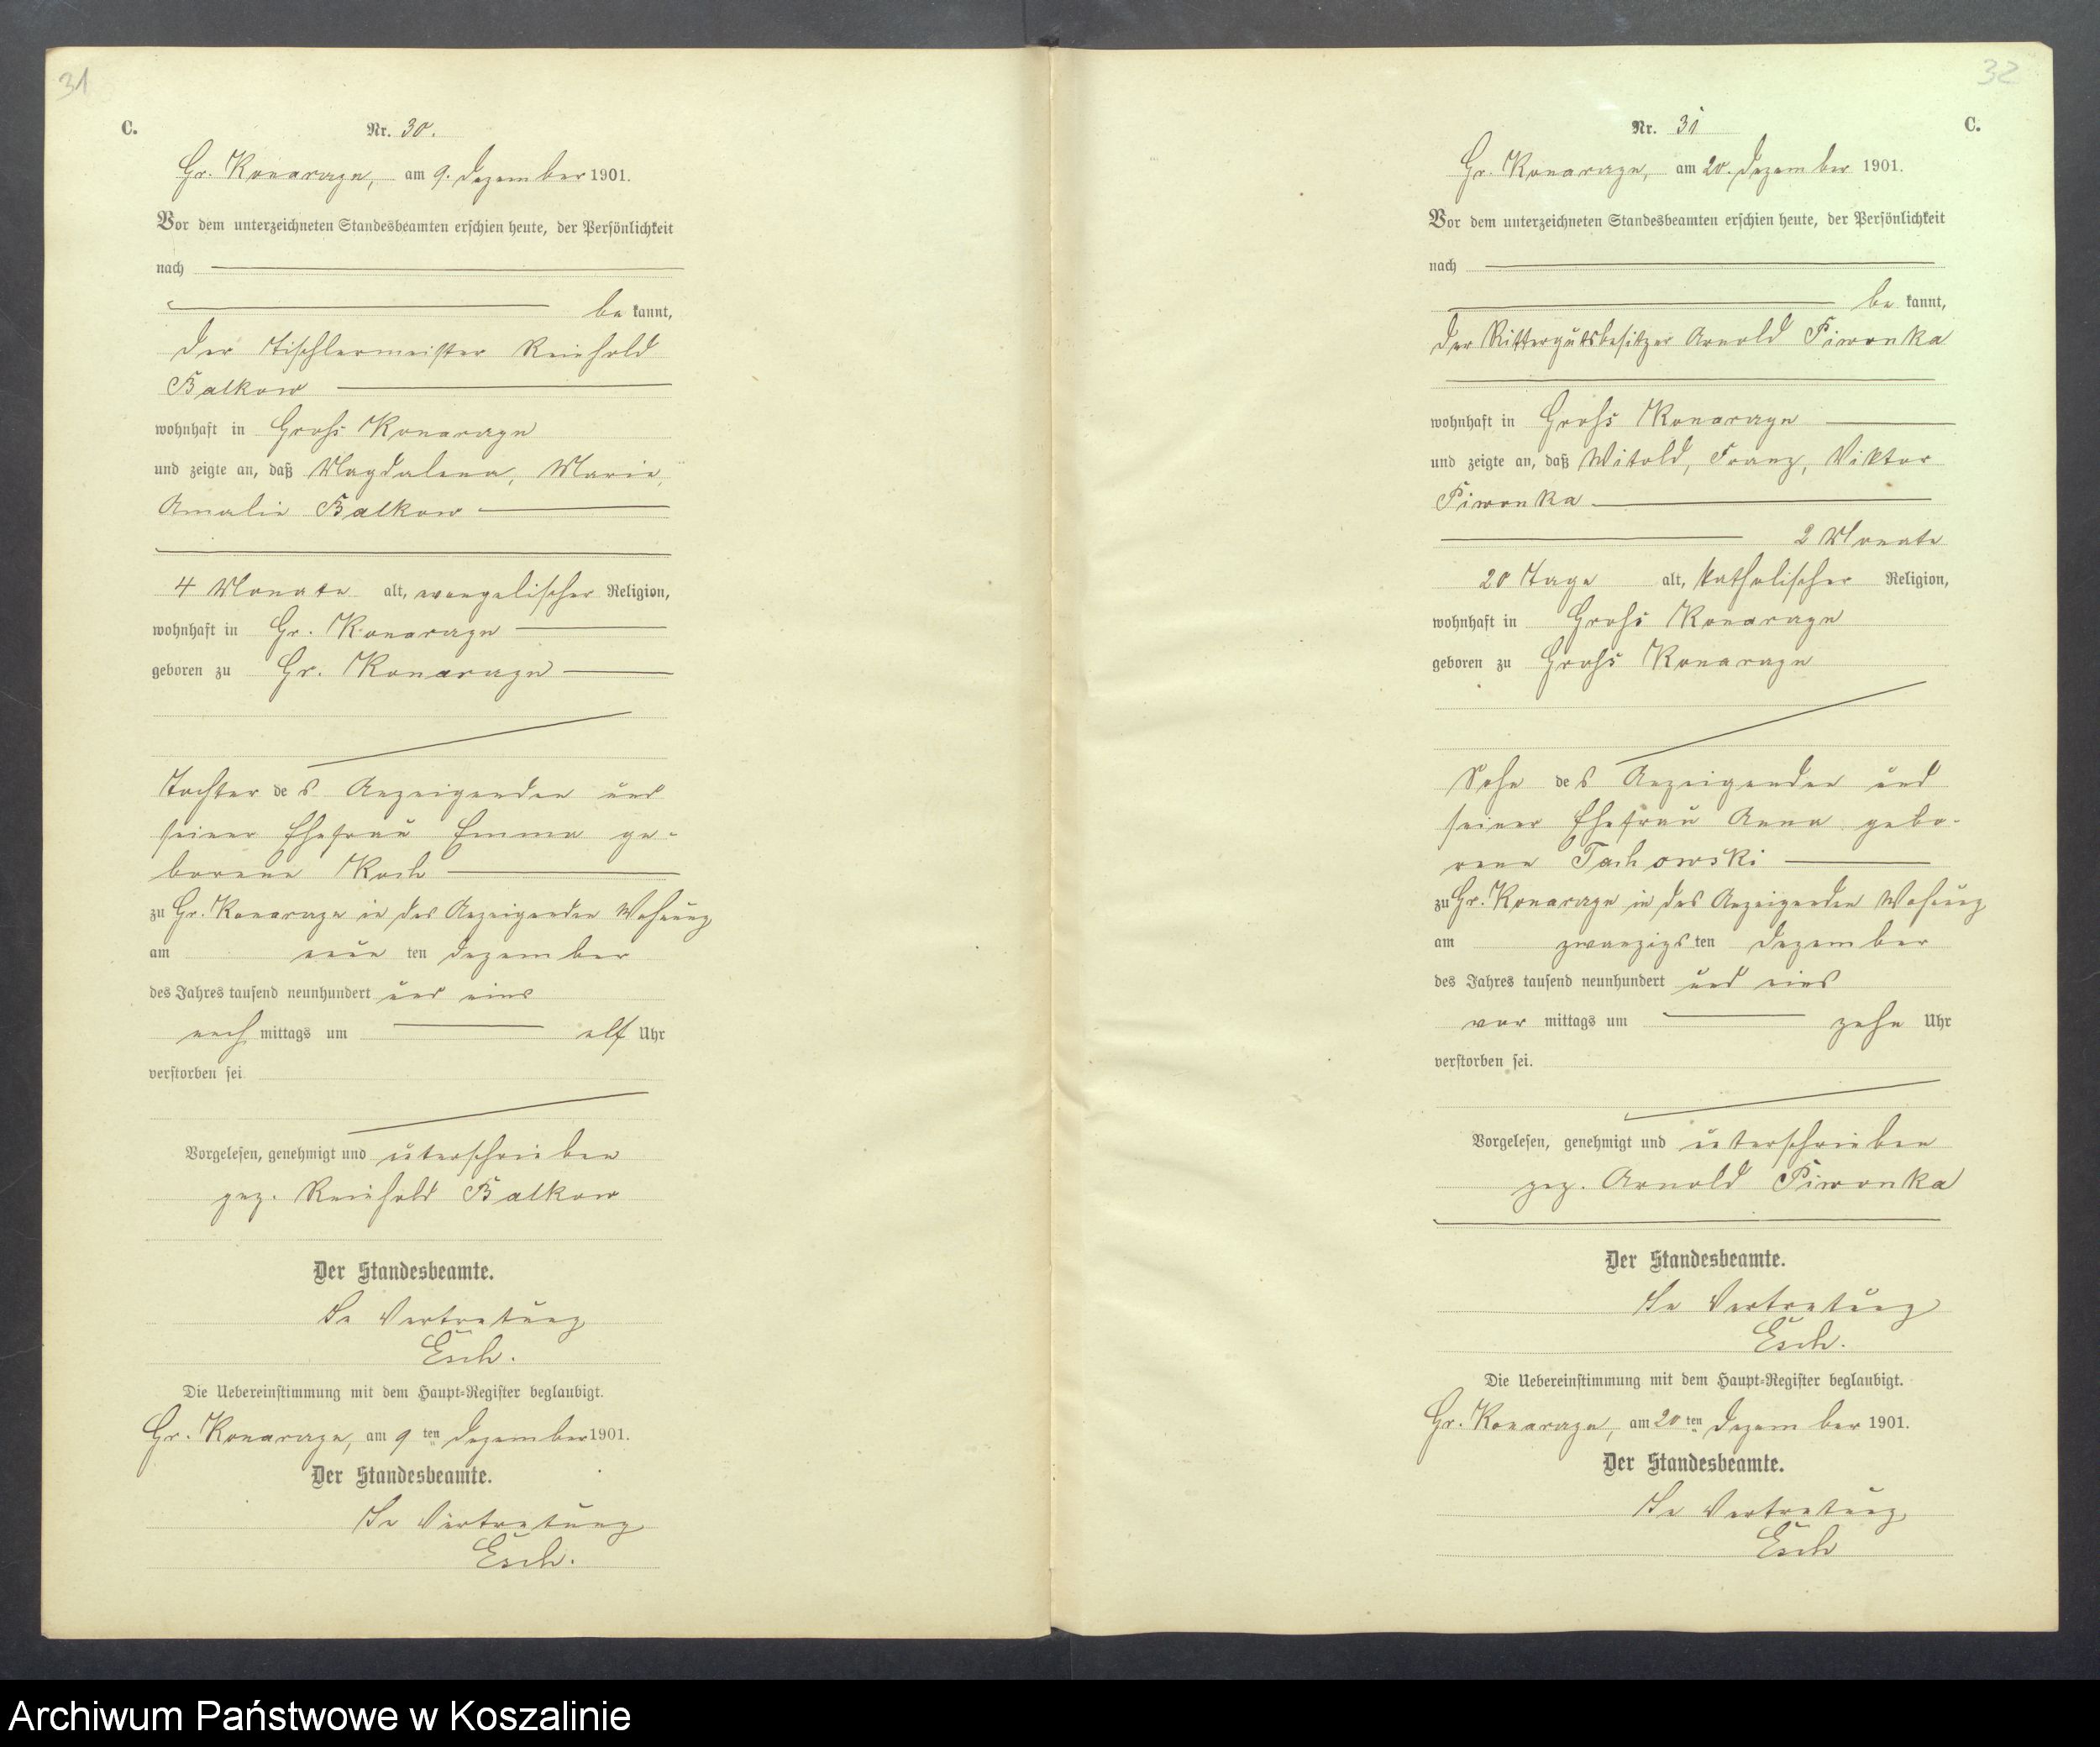 31
C.
Nr. 30.
Gr. Konarzyn, am 9. Dezember 1901.
Vor dem unterzeichneten Standesbeamten erschien heute, der Persönlichkeit
nach
be kannt,
der Tischlermeister Reinhold
Balkow
wohnhaft in Groß Konarzyn
und zeigte an, daß Magdalena, Marie,
Amalie Balkow
4 Monate alt, evangelischer Religion,
wohnhaft in Gr. Konarzyn
geboren zu Gr. Konarzyn
Tochter de s Anzeigenden und
seiner Ehefrau Emma ge-
borene Koch
zu Gr. Konarzyn in des Anzeigenden Wohnung
am neun ten Dezember
des Jahres tausend neunhundert und eins
nach mittags um elf Uhr
verstorben sei
Vorgelesen, genehmigt und unterschrieben
gez. Reinhold Balkow
Der Standesbeamte.
In Vertretung
Esch.
Die Uebereinstimmung mit dem Haupt-Register beglaubigt.
Gr. Konarzyn, am 9 ten Dezember 1901.
Der Standesbeamte.
In Vertretung
Esch.
32
Nr. 31
C.
Gr. Konarzyn, am 20. Dezember 1901.
Vor dem unterzeichneten Standesbeamten erschien heute, der Persönlichkeit
nach
be kannt,
der Rittergutsbesitzer Arnold Piwonka
wohnhaft in Groß Konarzyn
und zeigte an, daß Witold, Franz, Viktor
Piwonka
2 Monate
20 Tage alt, katholischer Religion,
wohnhaft in Groß Konarzyn
geboren zu Groß Konarzyn
Sohn de s Anzeigenden und
seiner Ehefrau Anna gebo-
rene Tachowski
zu Gr. Konarzyn in des Anzeigenden Wohnung
am zwanzigs ten Dezember
des Jahres tausend neunhundert und eins
vor mittags um zehn Uhr
verstorben sei.
Vorgelesen, genehmigt und unterschrieben
gez. Arnold Piwonka
Der Standesbeamte.
In Vertretung
Esch.
Die Uebereinstimmung mit dem Haupt-Register beglaubigt.
Gr. Konarzyn, am 20 ten Dezember 1901.
Der Standesbeamte.
In Vertretung
Esch
Archiwum Państwowe w Koszalinie